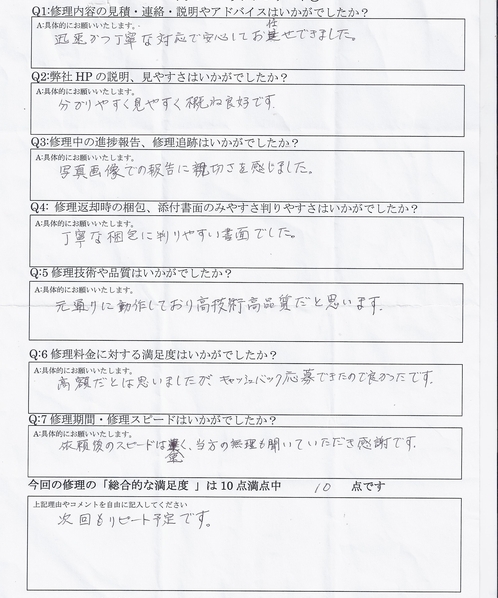 Q1:修理内容の見積・連絡・説明やアドバイスはいかがでしたか？
A:具体的にお願いいたします。
迅速かつ丁寧な対応で安心してお任せできました。
Q2:弊社HPの説明、見やすさはいかがでしたか？
A:具体的にお願いいたします。
分かりやすく見やすく概ね良好です。
Q3:修理中の進捗報告、修理追跡はいかがでしたか？
A:具体的にお願いいたします。
写真画像での報告に親切さを感じました。
Q4: 修理返却時の梱包、添付書面のみやすさ判りやすさはいかがでしたか？
A:具体的にお願いいたします。
丁寧な梱包に判りやすい書面でした。
Q:5 修理技術や品質はいかがでしたか？
A:具体的にお願いいたします。
元通りに動作しており高技術高品質だと思います。
Q:6 修理料金に対する満足度はいかがでしたか？
A:具体的にお願いいたします。
高額だとは思いましたが、キャッシュバック応募できたので良かったです。
Q:7 修理期間・修理スピードはいかがでしたか？
A:具体的にお願いいたします。
依頼後のスピードは く、当方の無理も聞いていただき感謝です。
今回の修理の「総合的な満足度 」は 10 点満点中 10 点です
上記理由やコメントを自由に記入してください
次回もリピート予定です。